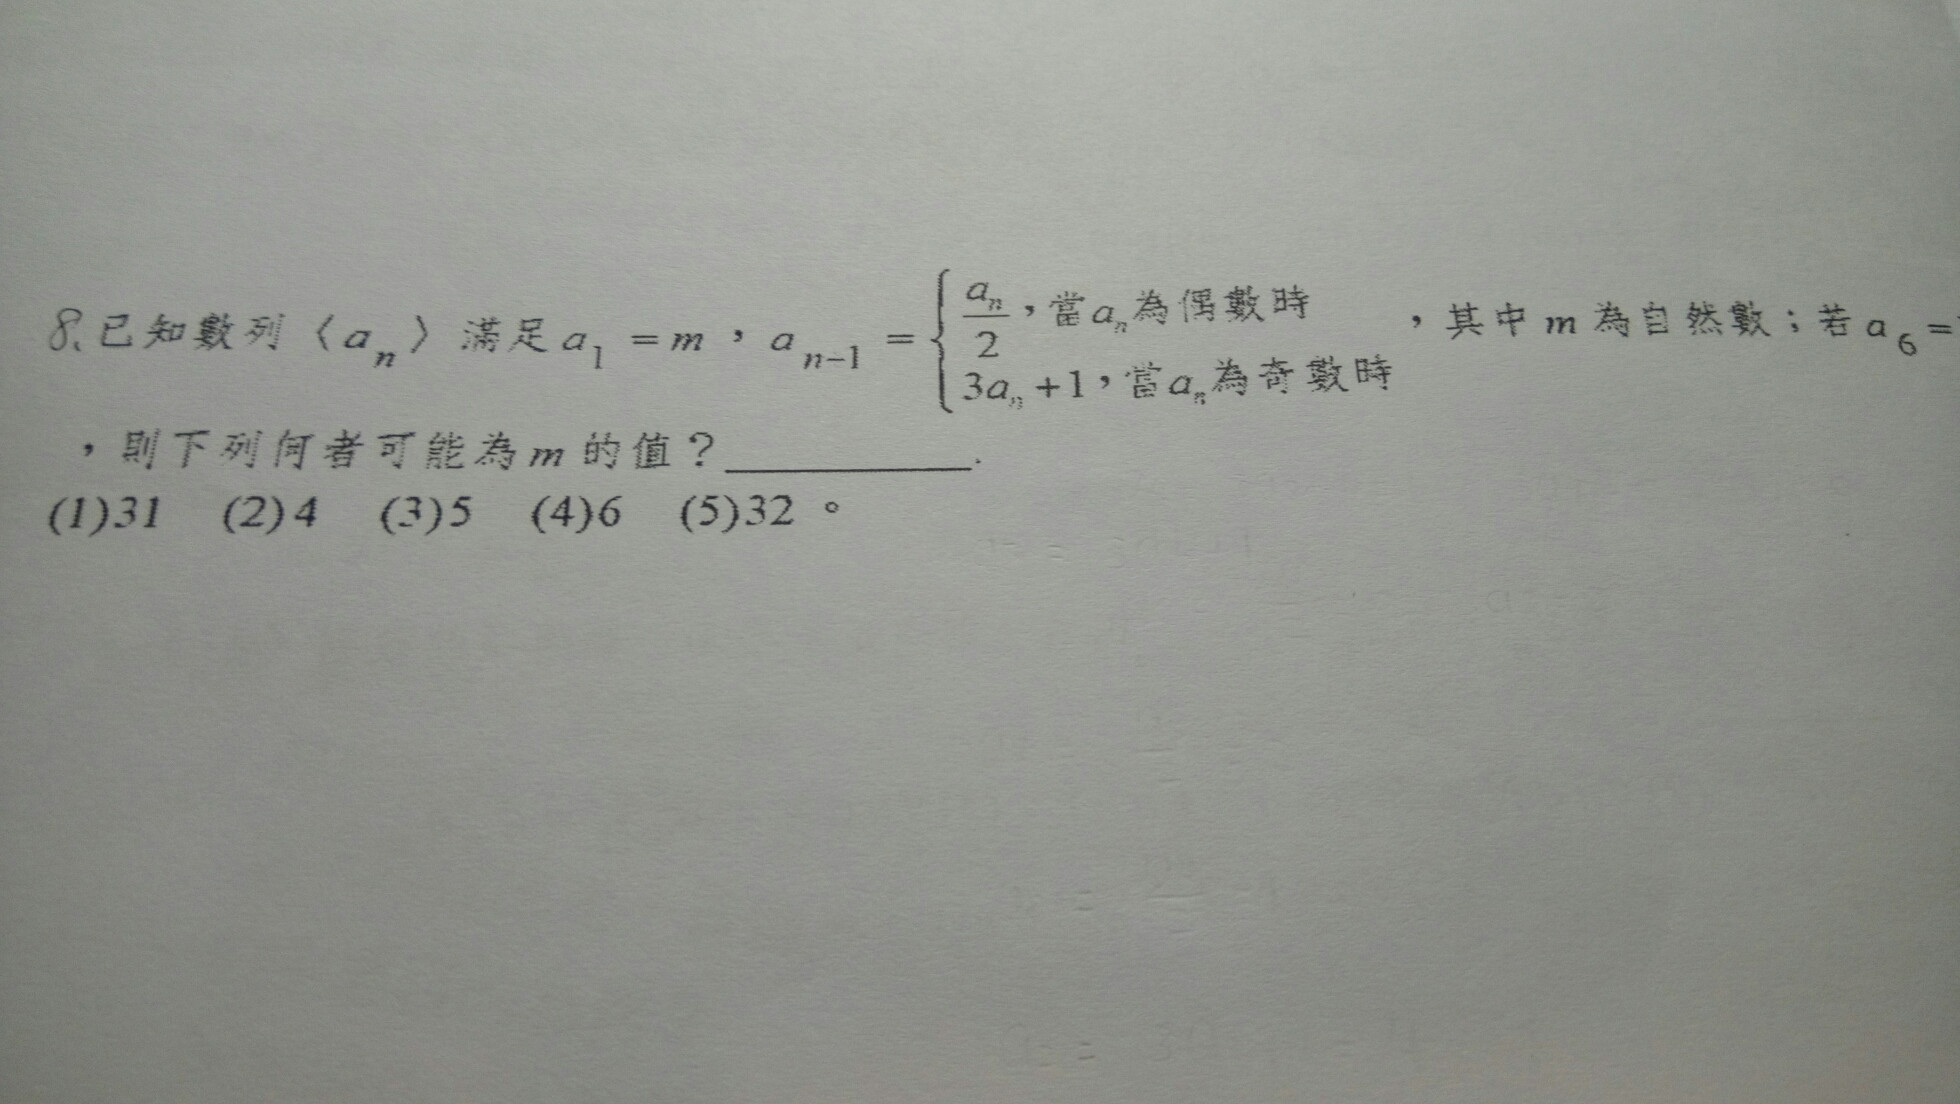 8、已知數列〈a_n〉滿足a_1=m，a_{n-1}={a_n/2，當a_n為偶數時，其中m為自然數；若a_6=
3a_n+1，當a_n為奇數時
，則下列何者可能為m的值？__________.
(1)31 (2)4 (3)5 (4)6 (5)32。